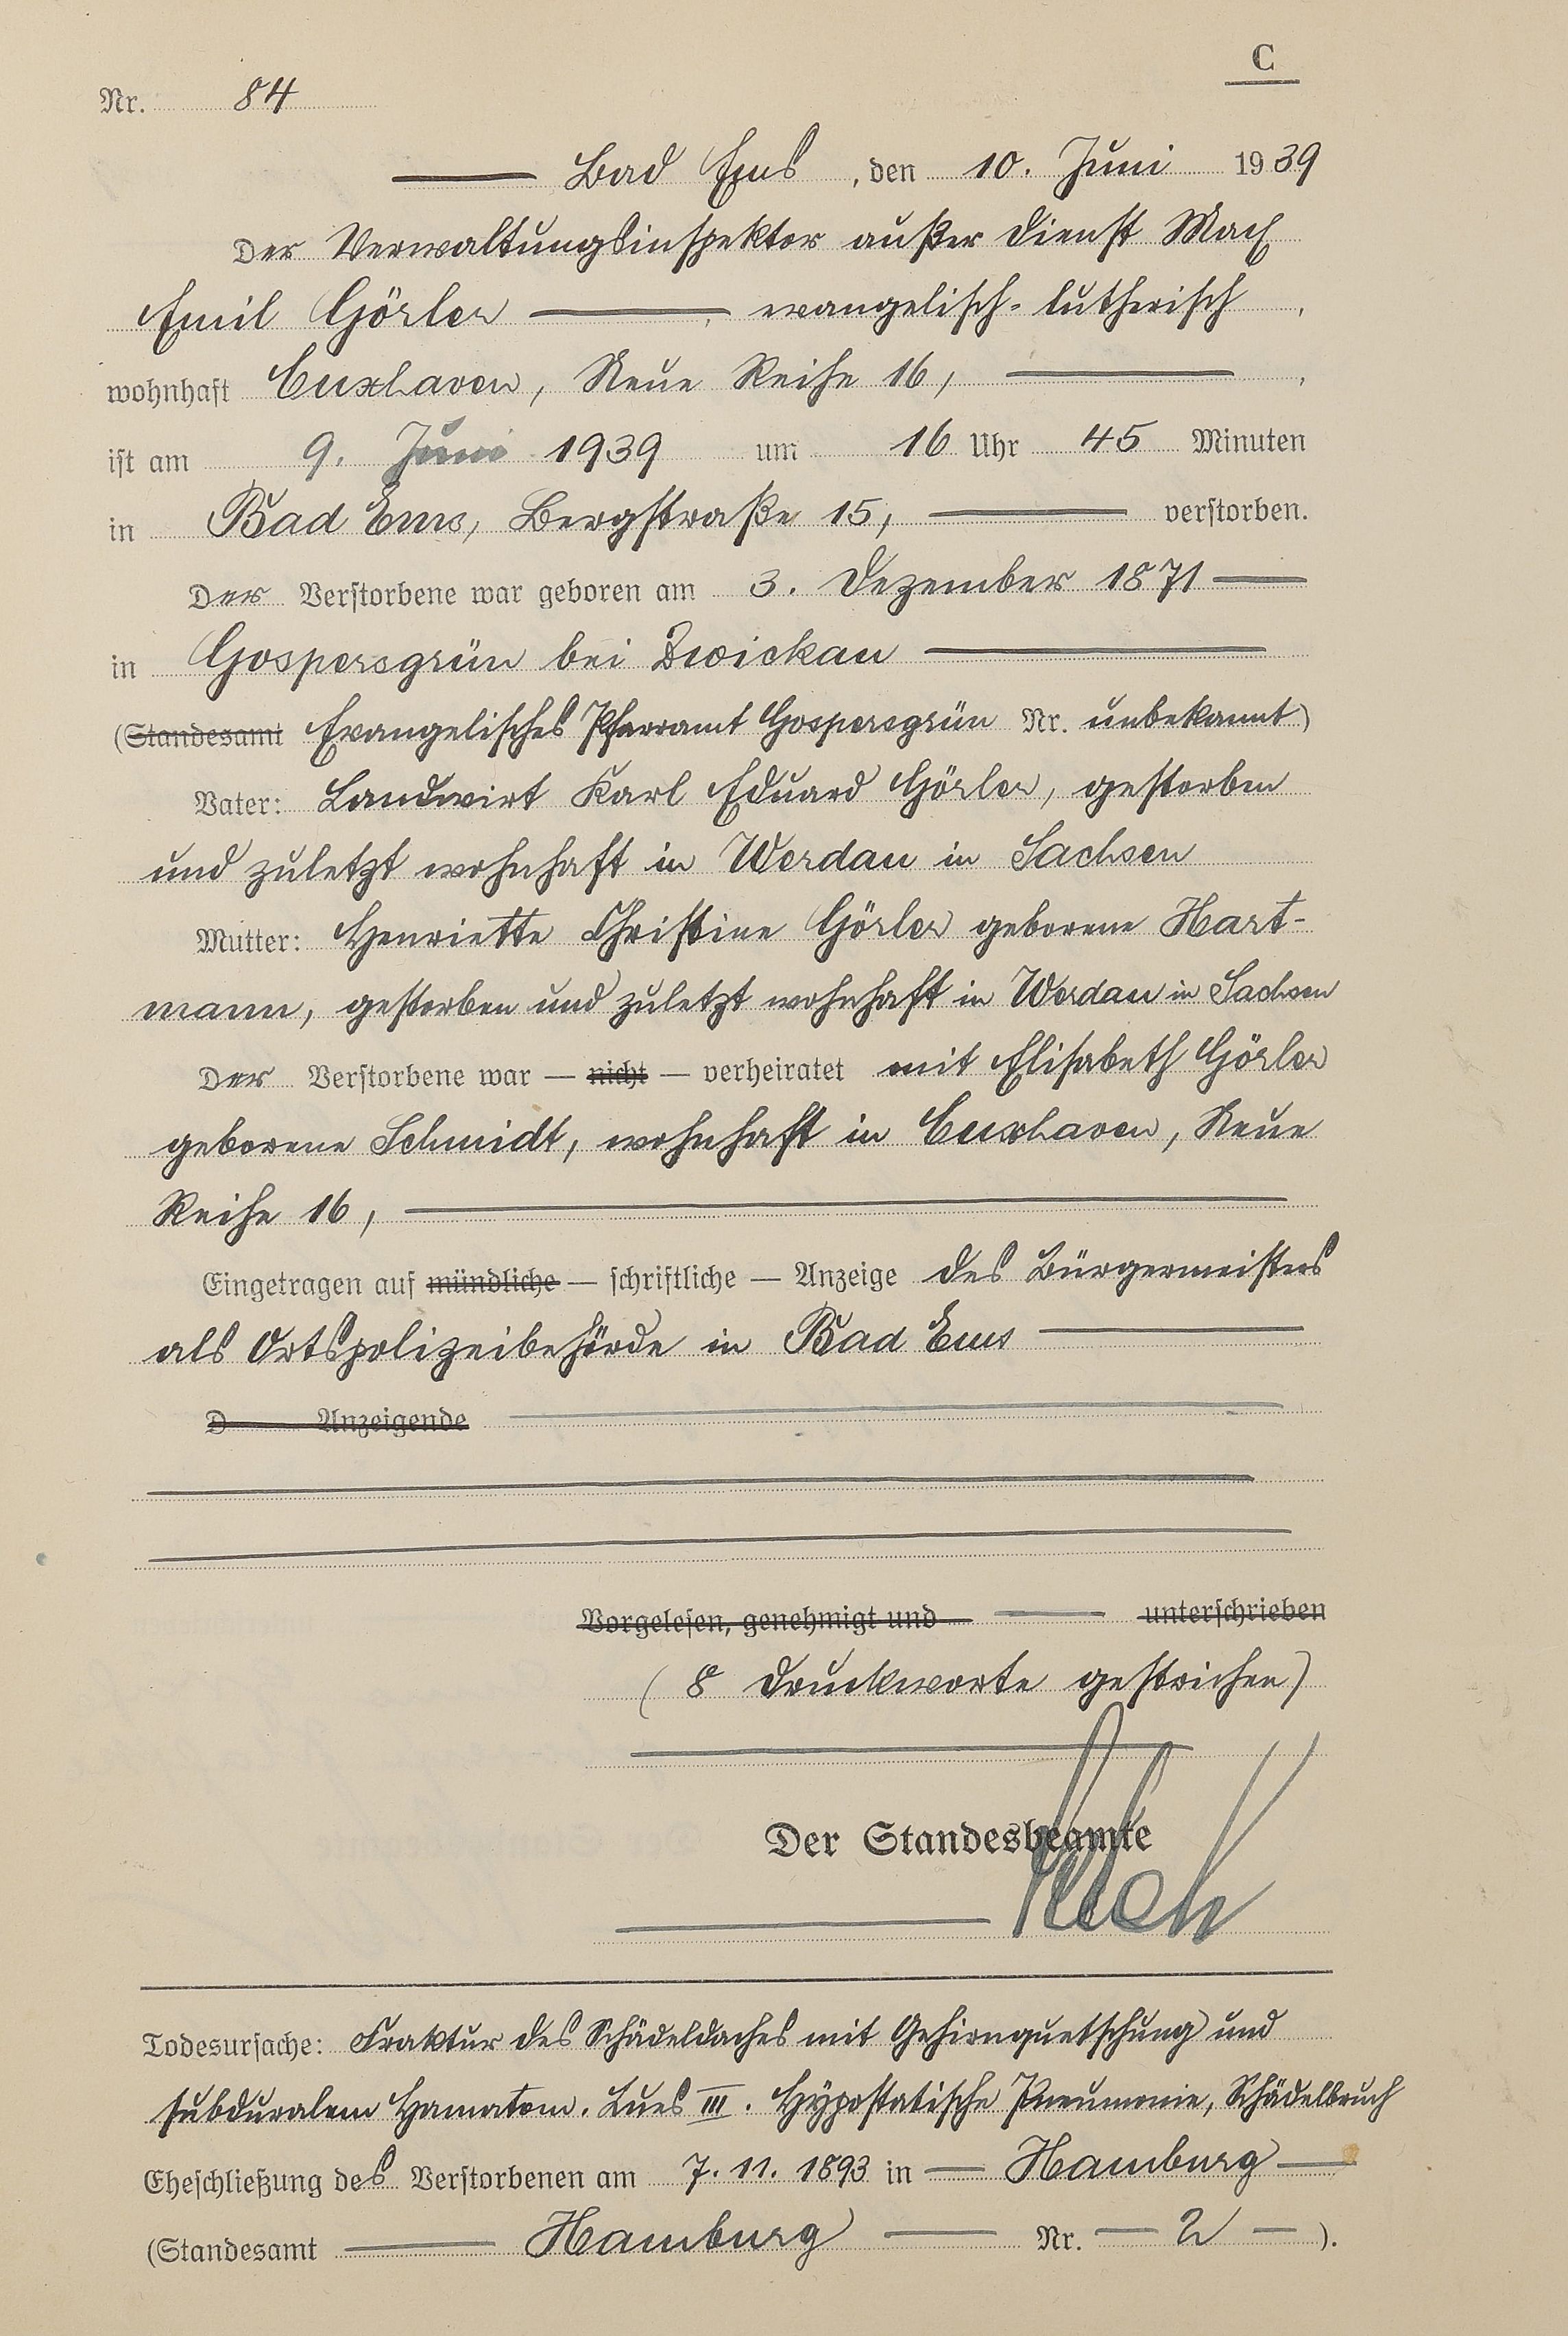 C
Nr. 84
Bad Ems, den 10. Juni 1939
Der Verwaltungsinspektor außer Dienst Max
Emil Görler evangelisch-lutherisch,
wohnhaft Cuxhaven, Neue Reihe 16,
ist am 9. Juni 1939 um 16 Uhr 45 Minuten
in Bad Ems, Bergstraße 15, verstorben.
Der Verstorbene war geboren am 3. Dezember 1871
in Gospersgrün bei Zwickau
(Standesamt Evangelisches Pfarramt Gospersgrün Nr. unbekannt)
Vater: Landwirt Karl Eduard Görler, gestorben
und zuletzt wohnhaft in Werdau in Sachsen
Mutter: Henriette Christine Görler geborene Hart-
mann, gestorben und zuletzt wohnhaft in Werdau in Sachsen
Der Verstorbene war — nicht — verheiratet mit Elisabeth Görler
geborene Schmidt, wohnhaft in Cuxhaven, Neue
Reihe 16,
Eingetragen auf mündliche — schriftliche — Anzeige des Bürgermeisters
als Ortspolizeibehörde in Bad Ems
D Anzeigende
Vorgelesen, genehmigt und unterschrieben
(8 Druckworte gestrichen)
Der Standesbeamte
Todesursache: Fraktur des Schädeldaches mit Gehirnquetschung und
subduralem Hamatom. Lues III. Hypostatische Pneumonie, Schädelbruch
Eheschließung des Verstorbenen am 7.11.1893 in Hamburg
(Standesamt Hamburg Nr. 2).